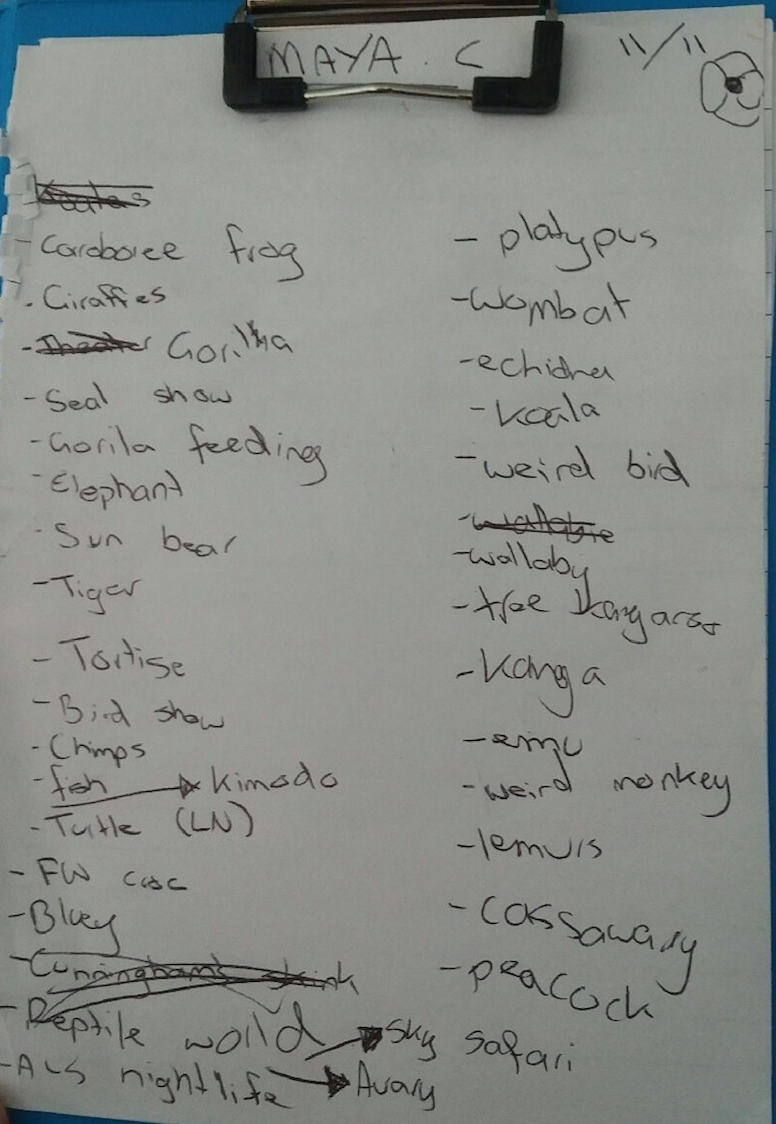 MAYA. C
11/11
- Caroboree frog
. Giraffes
- Gorilla
- Seal show
- Gorila feeding
- Elephant
- Sun bear
- Tiger
- Tortise
- Bird show
- Chimps
- fish → Kimodo
- Turtle (LN)
- FW croc
- Bluey
- Cunningham's skink
- Reptile world → Sky safari
- Aus nightlife → Avary
- platypus
- wombat
- echidna
- Koala
- weird bird
- wallabie
- wallaby
- tree kangaroo
- Kanga
- emu
- weird monkey
- lemurs
- cassawary
- peacock